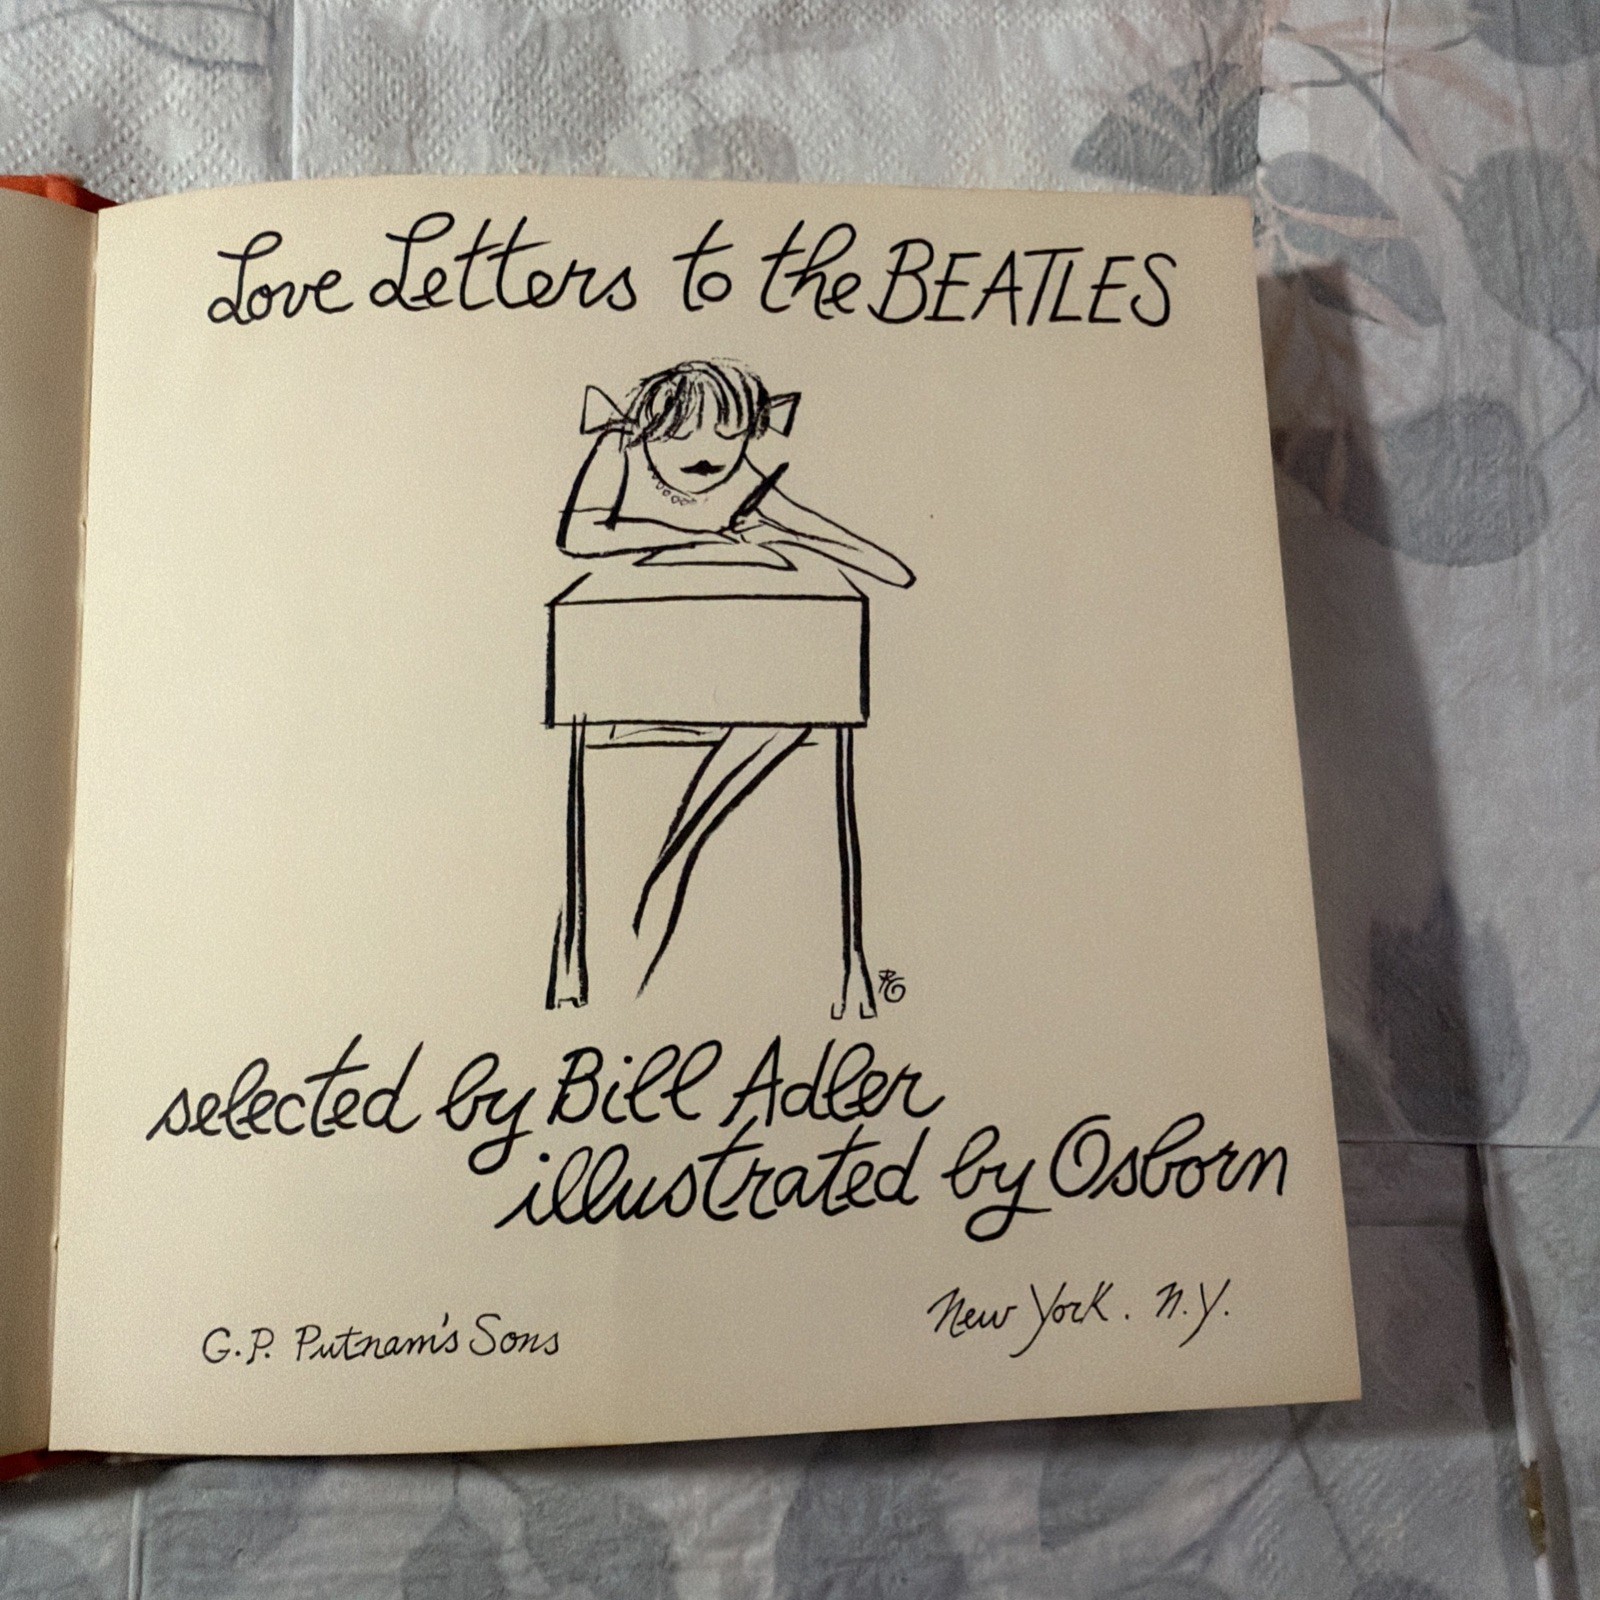 Love Letters to the BEATLES
selected by Bill Adler
illustrated by Osborn
G.P. Putnam's Sons
New York. N.Y.